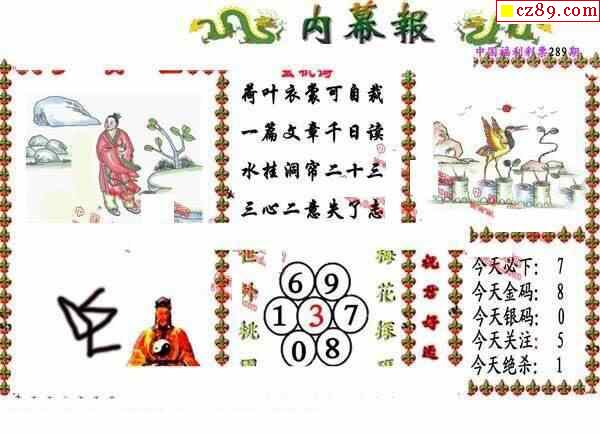 cz89.com
内幕報
中国福利彩票289期
玄机诗
荷叶衣裳可自裁
一篇文章千日读
水挂洞帘二十三
三心二意失了志
今天必下：7
今天金码：8
今天银码：0
今天关注：5
今天绝杀：1
祝君好运
梅花探码
6 9
1 3 7
0 8